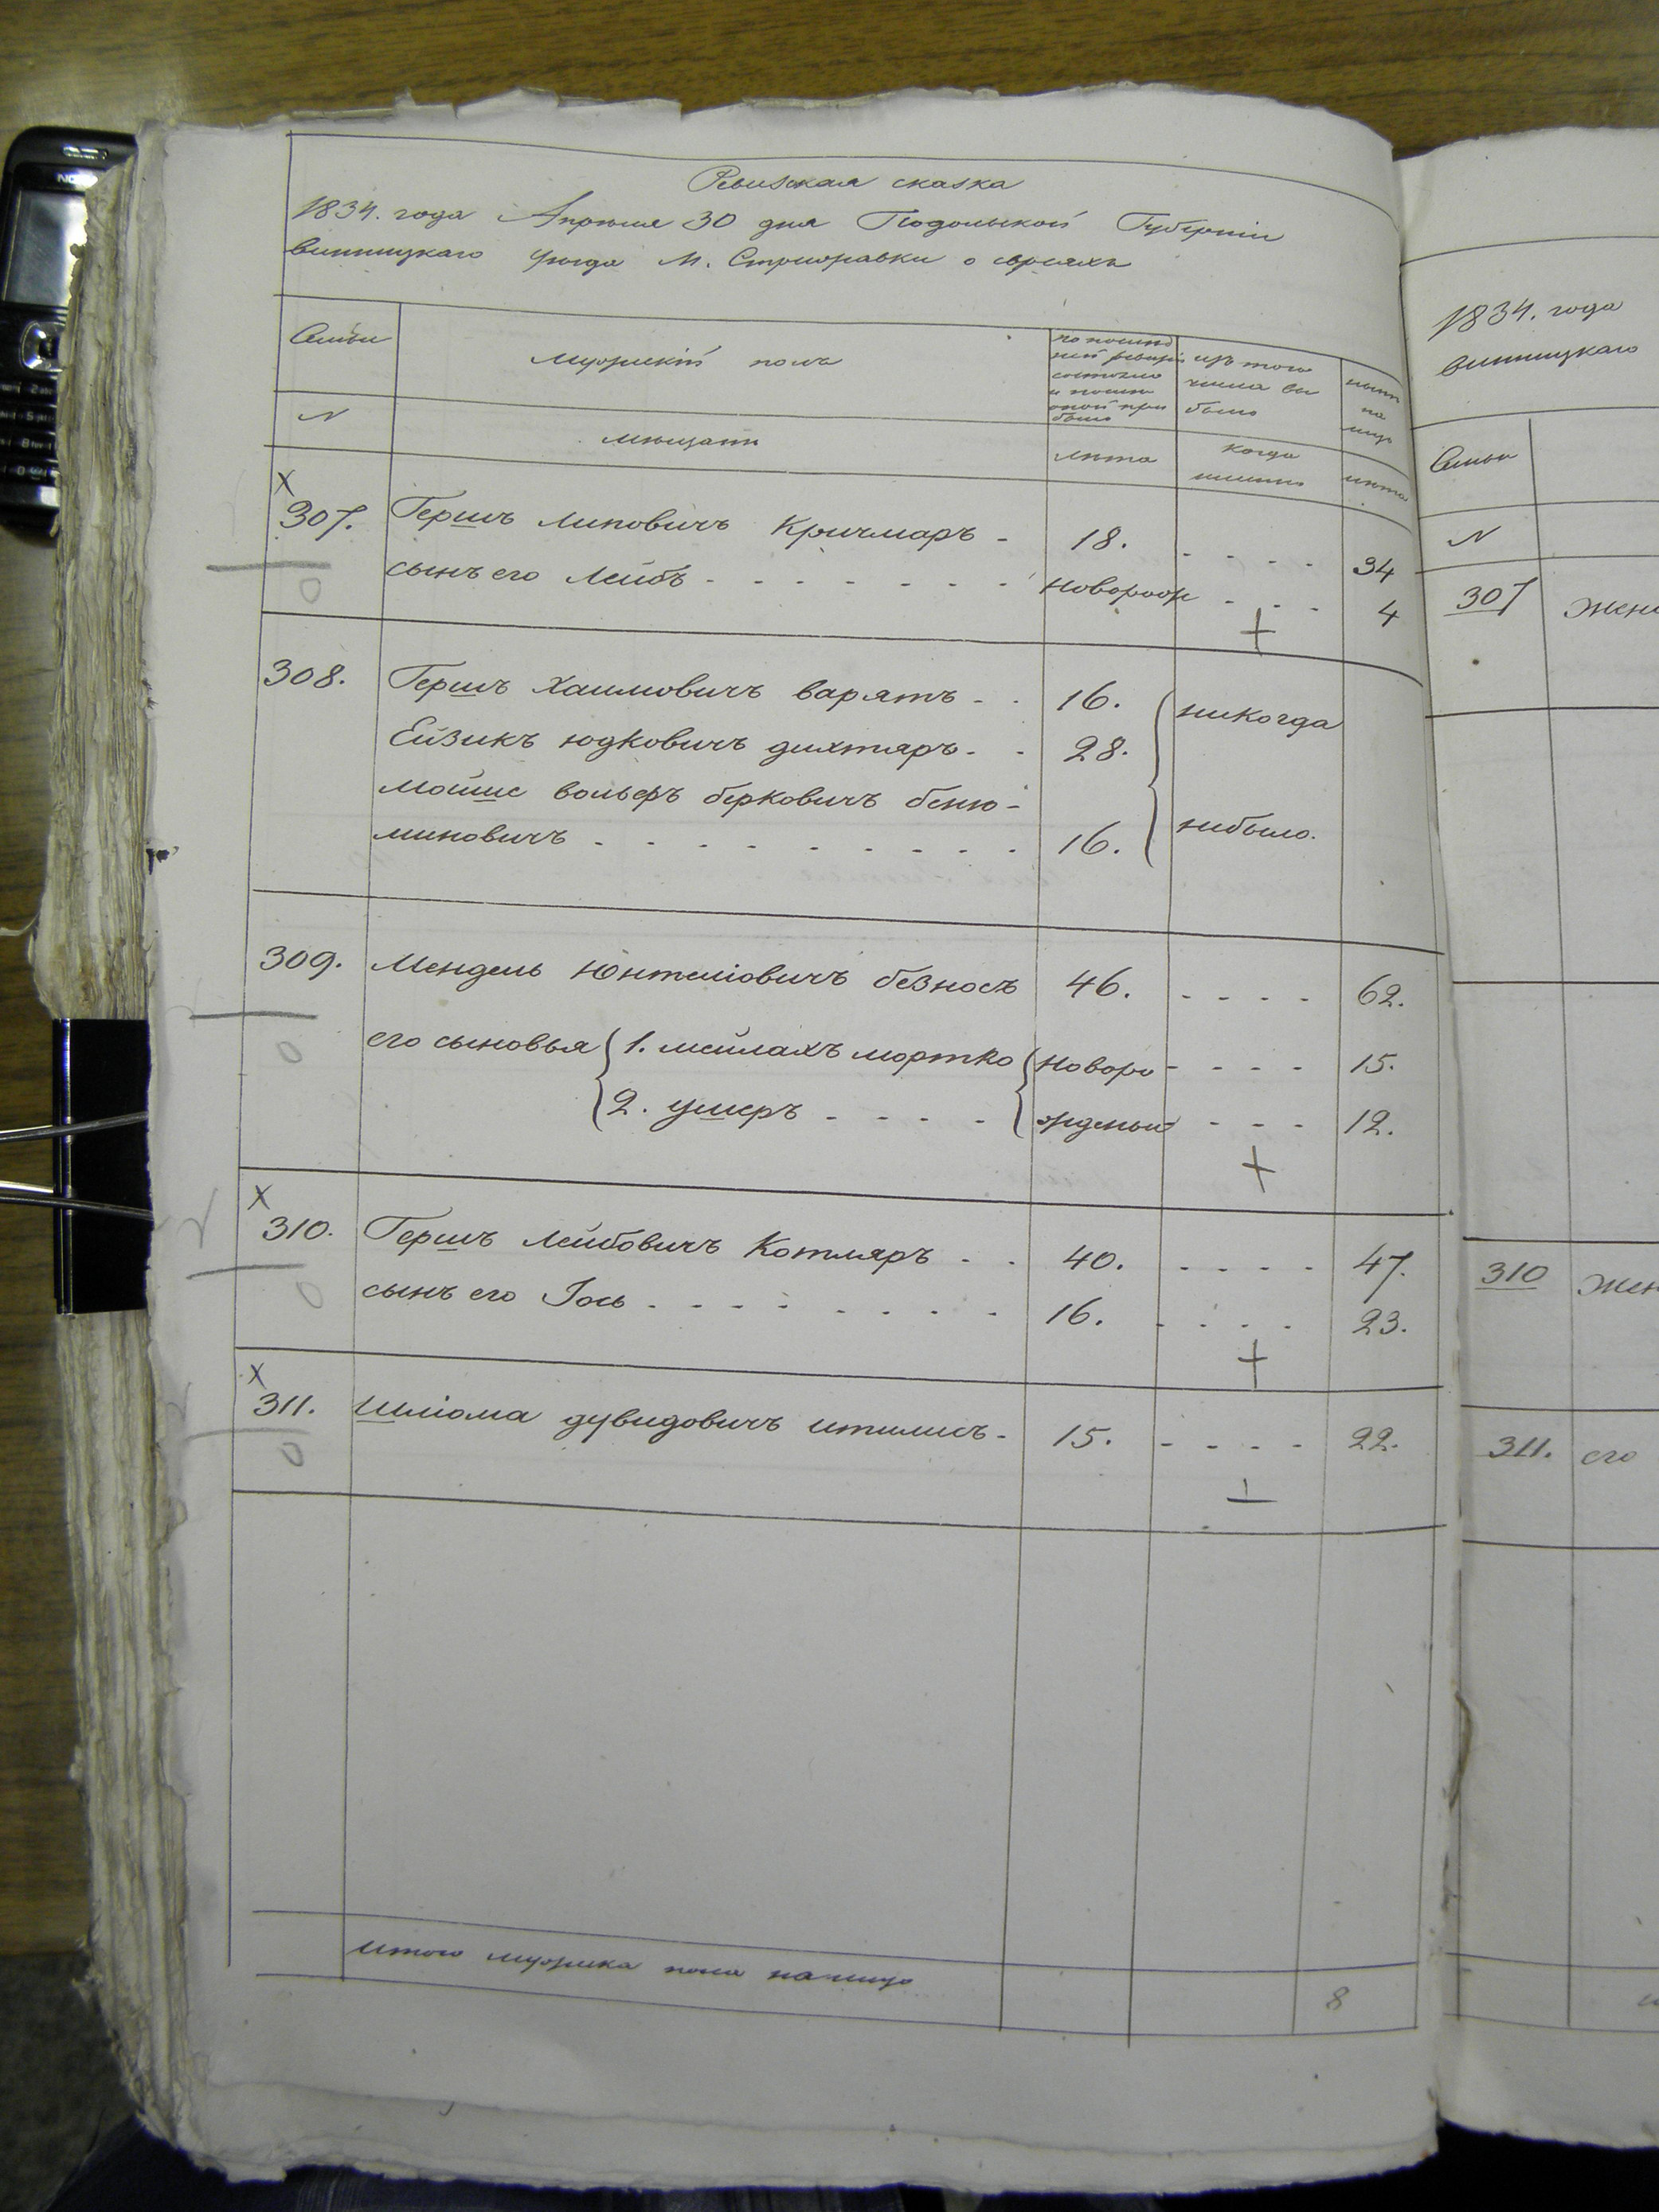 Ревизская сказка
1834. года Апреля 30 дня Подольской Губерніи
винницкаго уезда М. Стрижавки о евреяхъ
Семьи
мужескій полъ
по послед
ней ревизіи
состояло
и после
оной при
было
изъ того
числа вы
было
ныне
на
лицо
N
мещане
лета
когда
именно
лета
307. Гершъ липовичъ Кричмаръ - 18. - - - - 34
сынъ его Лейбъ - - - - - - - новорож - - - 4
308. Гершъ Хаимовичъ варятъ - - 16. никогда
Ейзикъ юдковичъ дихтяръ - - 28.
мошие вольфъ берковичъ беню-
миновичъ - - - - - - - - - 16. небыло.
309. Мендель Юнтеліовичъ безносъ 46. - - - - 62.
его сыновья 1. мейлахъ мортко новоро - - - - 15.
2. ушеръ - - - - жденые - - - 12.
310. Гершъ Лейбовичъ Котляръ - - 40. - - - - 47.
сынъ его Іось - - - - - - - - 16. - - - - 23.
311. Шліома дувидовичъ - 15. - - - - 22.
итого мужеска пола налицо 8
1834. года
винницкаго
Семьи
N
307 жен
310 жен
311. его
NO